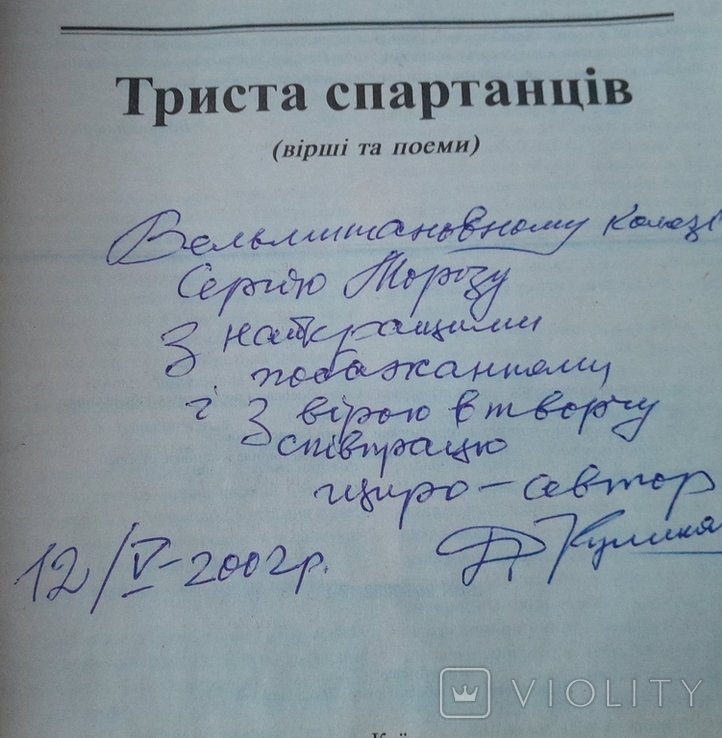 Триста спартанців
(вірші та поеми)
Вельмишановному колезі
Сергію Морозу
З найкращими
побажаннями
і З вірою в творчу
співпрацю
щиро – автор
12/V-2002р.
VIOLITY